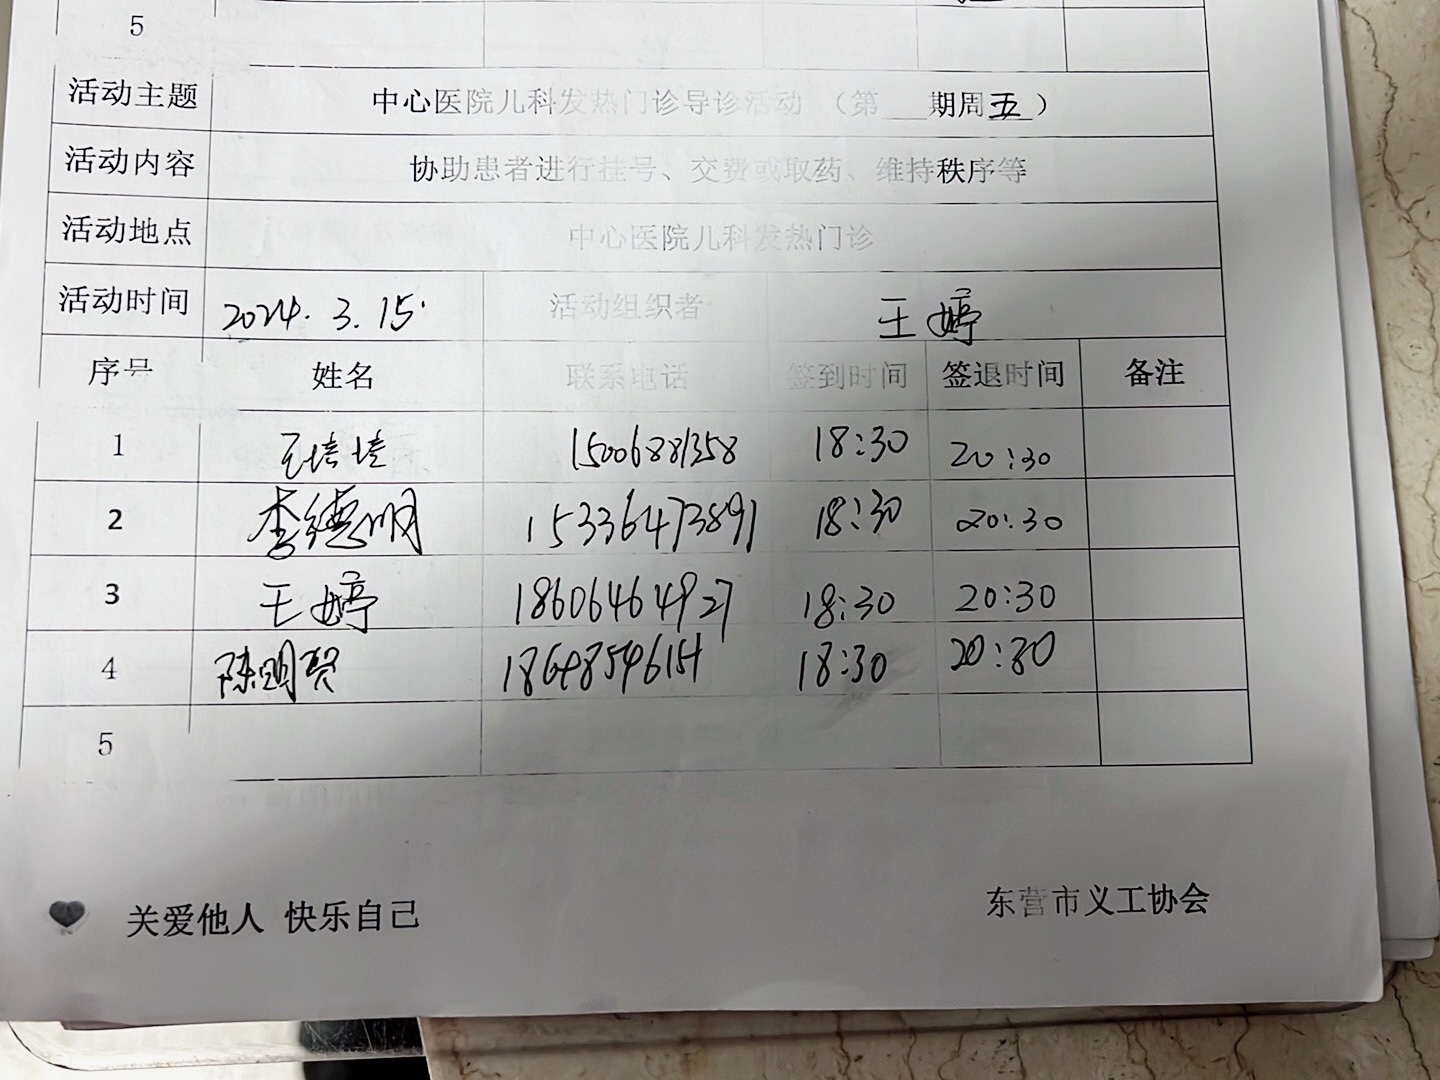 5
活动主题 中心医院儿科发热门诊导诊活动 （第___期周五）
活动内容 协助患者进行挂号、交费或取药、维持秩序等
活动地点 中心医院儿科发热门诊
活动时间 2024.3.15. 活动组织者 王婷
序号 姓名 联系电话 签到时间 签退时间 备注
1 王培培 15006881358 18:30 20:30
2 李德明 15336473891 18:30 20:30
3 王婷 18606464927 18:30 20:30
4 18:30 20:30
5
关爱他人 快乐自己 东营市义工协会